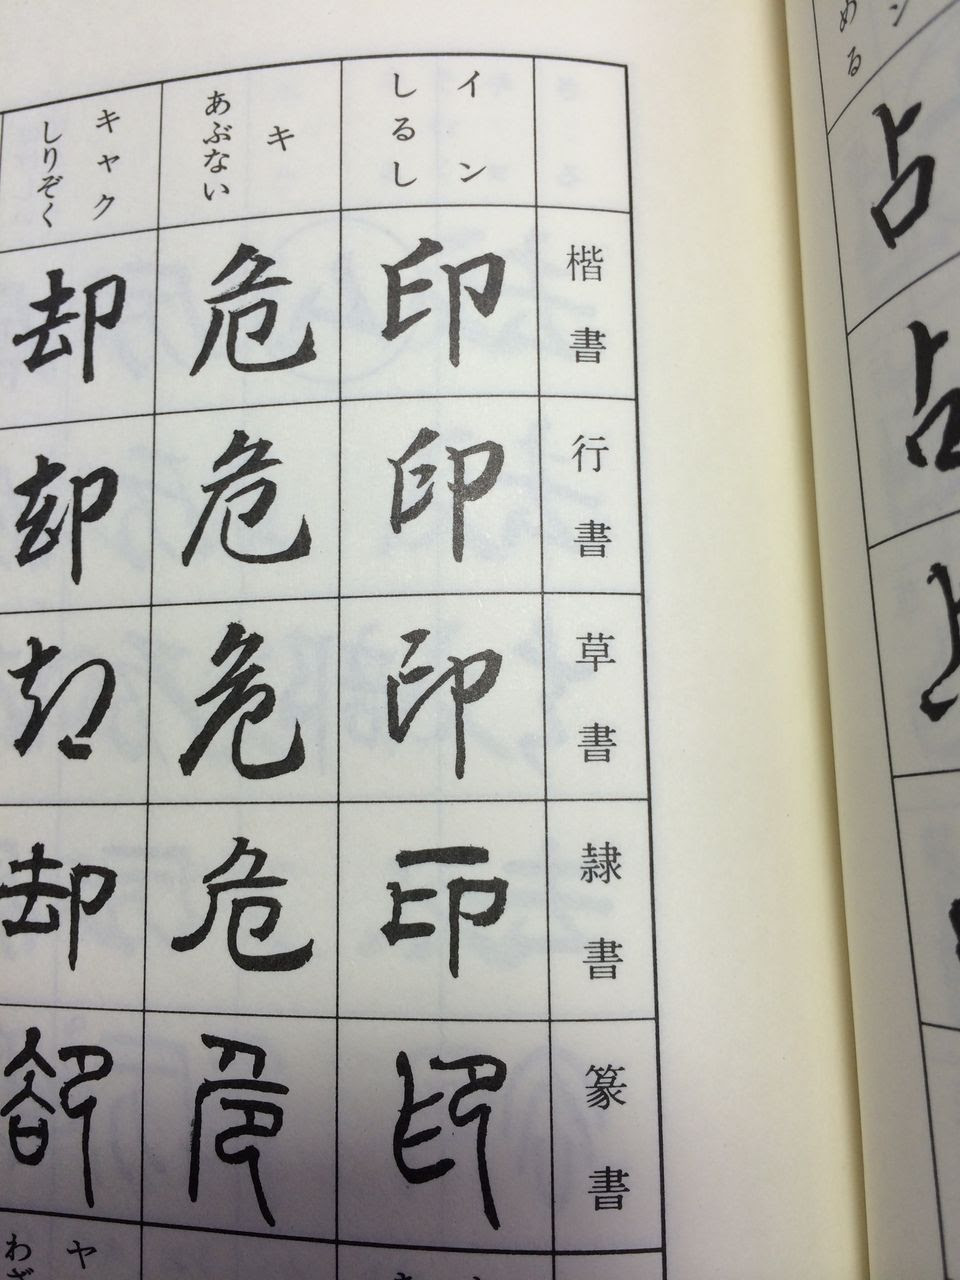 楷書
行書
草書
隷書
篆書
イン
しるし
印
印
印
印
印
キ
あぶない
危
危
危
危
危
キャク
しりぞく
却
却
却
却
卻
ヤ
める
占
占